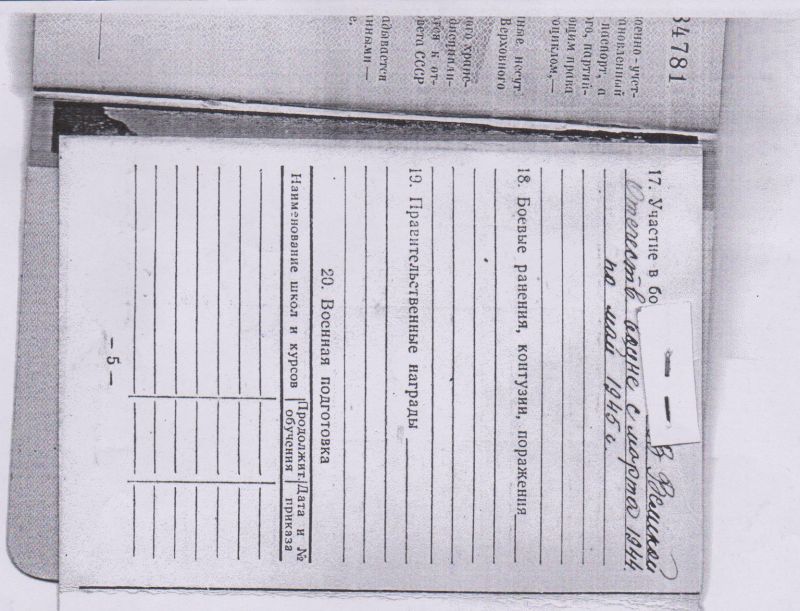 34781
оенно-учет-
ановленный
паспорт, а
го, партий-
ющим права
оциклом,—
нные, несут
Верховного
ного хране-
дисципли-
тся к от-
вета СССР
адывается
нными —
17. Участие в бо в Великой
Отечеств. войне с марта 1944
по май 1945 г.
18. Боевые ранения, контузии, поражения
19. Правительственные награды
20. Военная подготовка
Наименование школ и курсов Продолжит. обучения Дата и № приказа
— 5 —